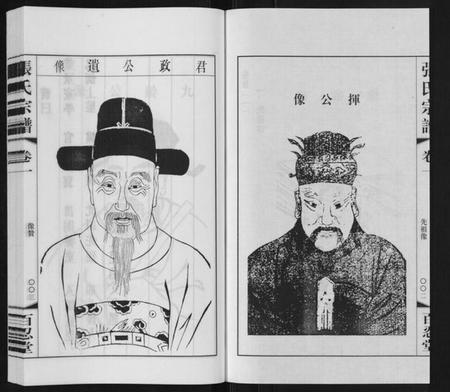 揮公像
張氏宗譜
卷一
先祖像
百忍堂
君政公遺像
張氏宗譜
卷一
像贊
百忍堂